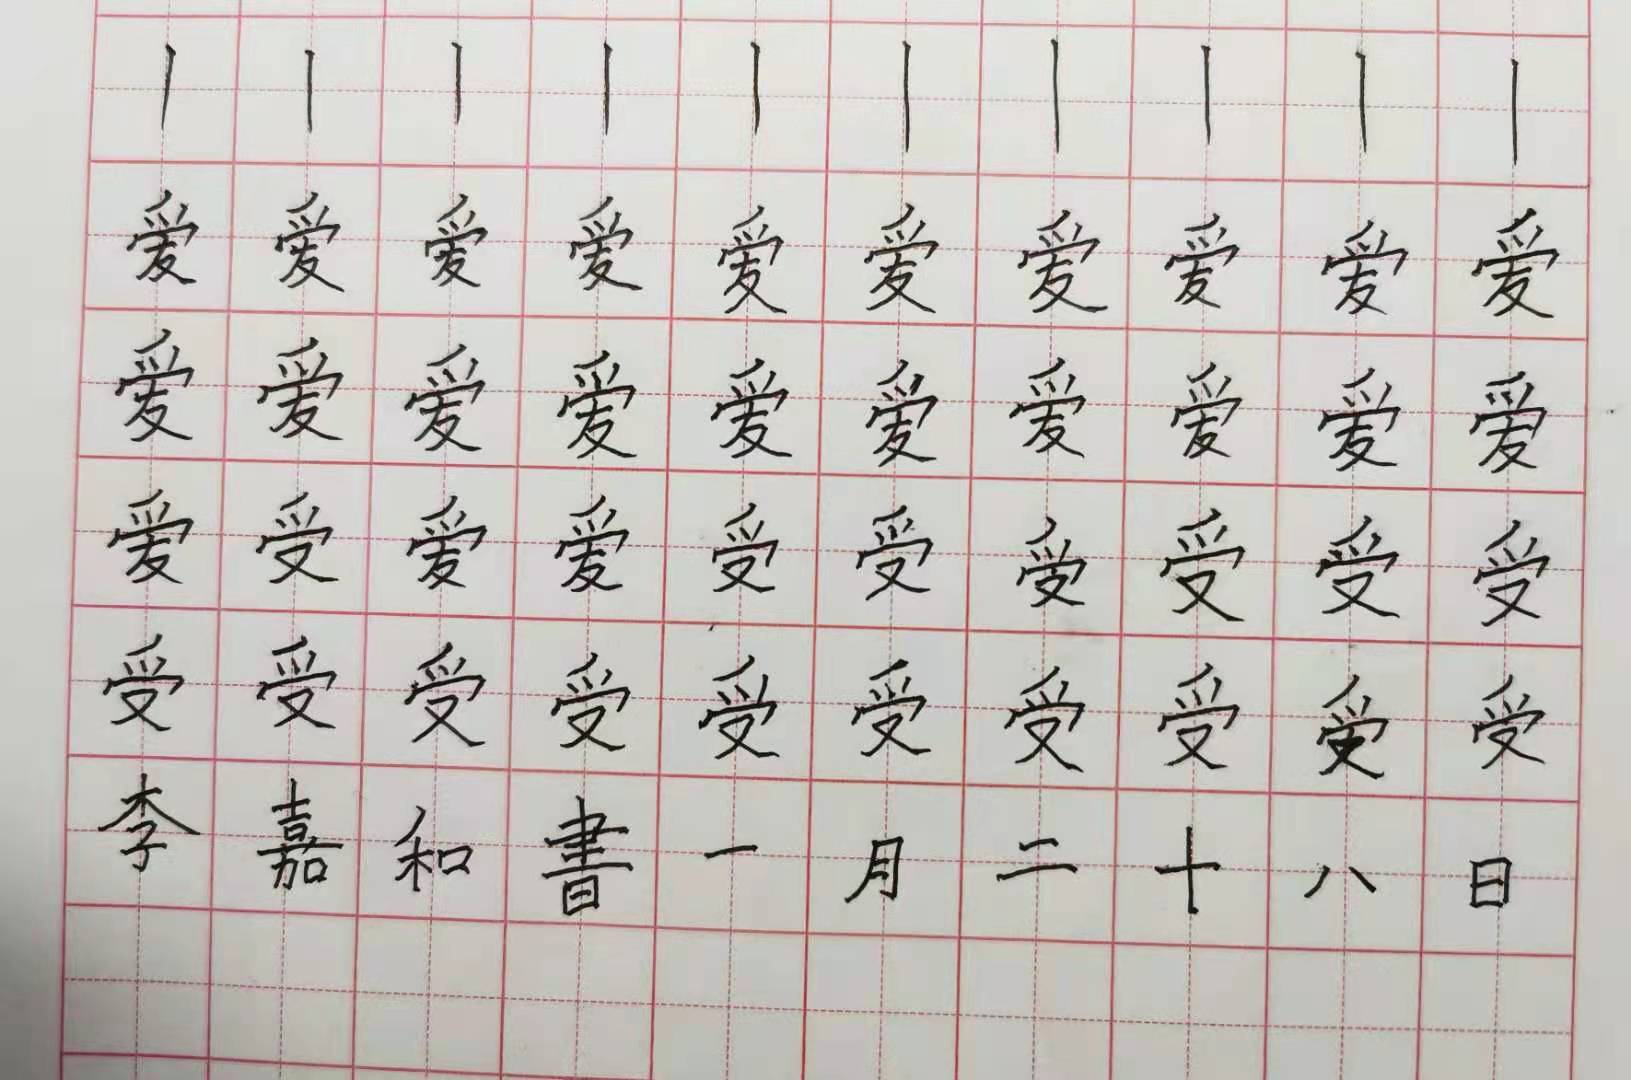 丨丨丨丨丨丨丨丨丨丨
爱爱爱爱爱爱爱爱爱爱
爱爱爱爱爱爱爱爱爱爱
爱受爱爱受受受受受受
受受受受受受受受受受
李嘉和書一月二十八日